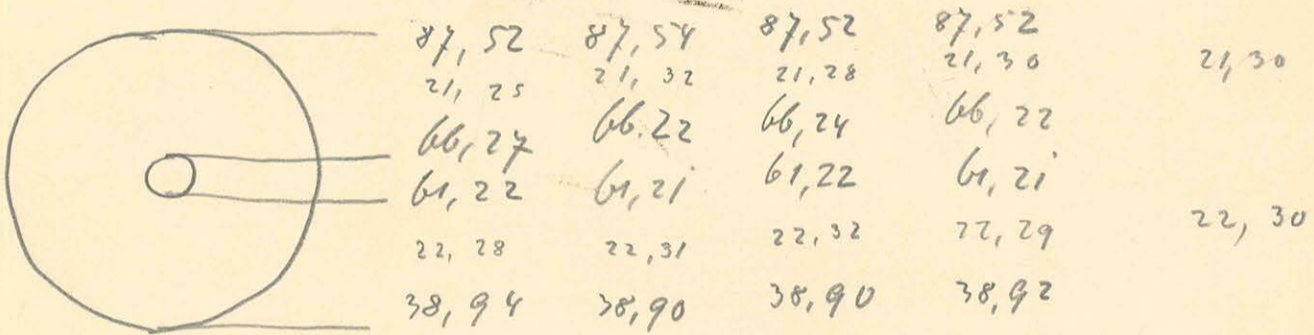 87,52 87,54 87,52 87,52
21,25 21,32 21,28 21,30 21,30
66,27 66.22 66,24 66,22
61,22 61,21 61,22 61,21
22,28 22,31 22,32 22,29 22,30
38,94 38,90 38,90 38,92